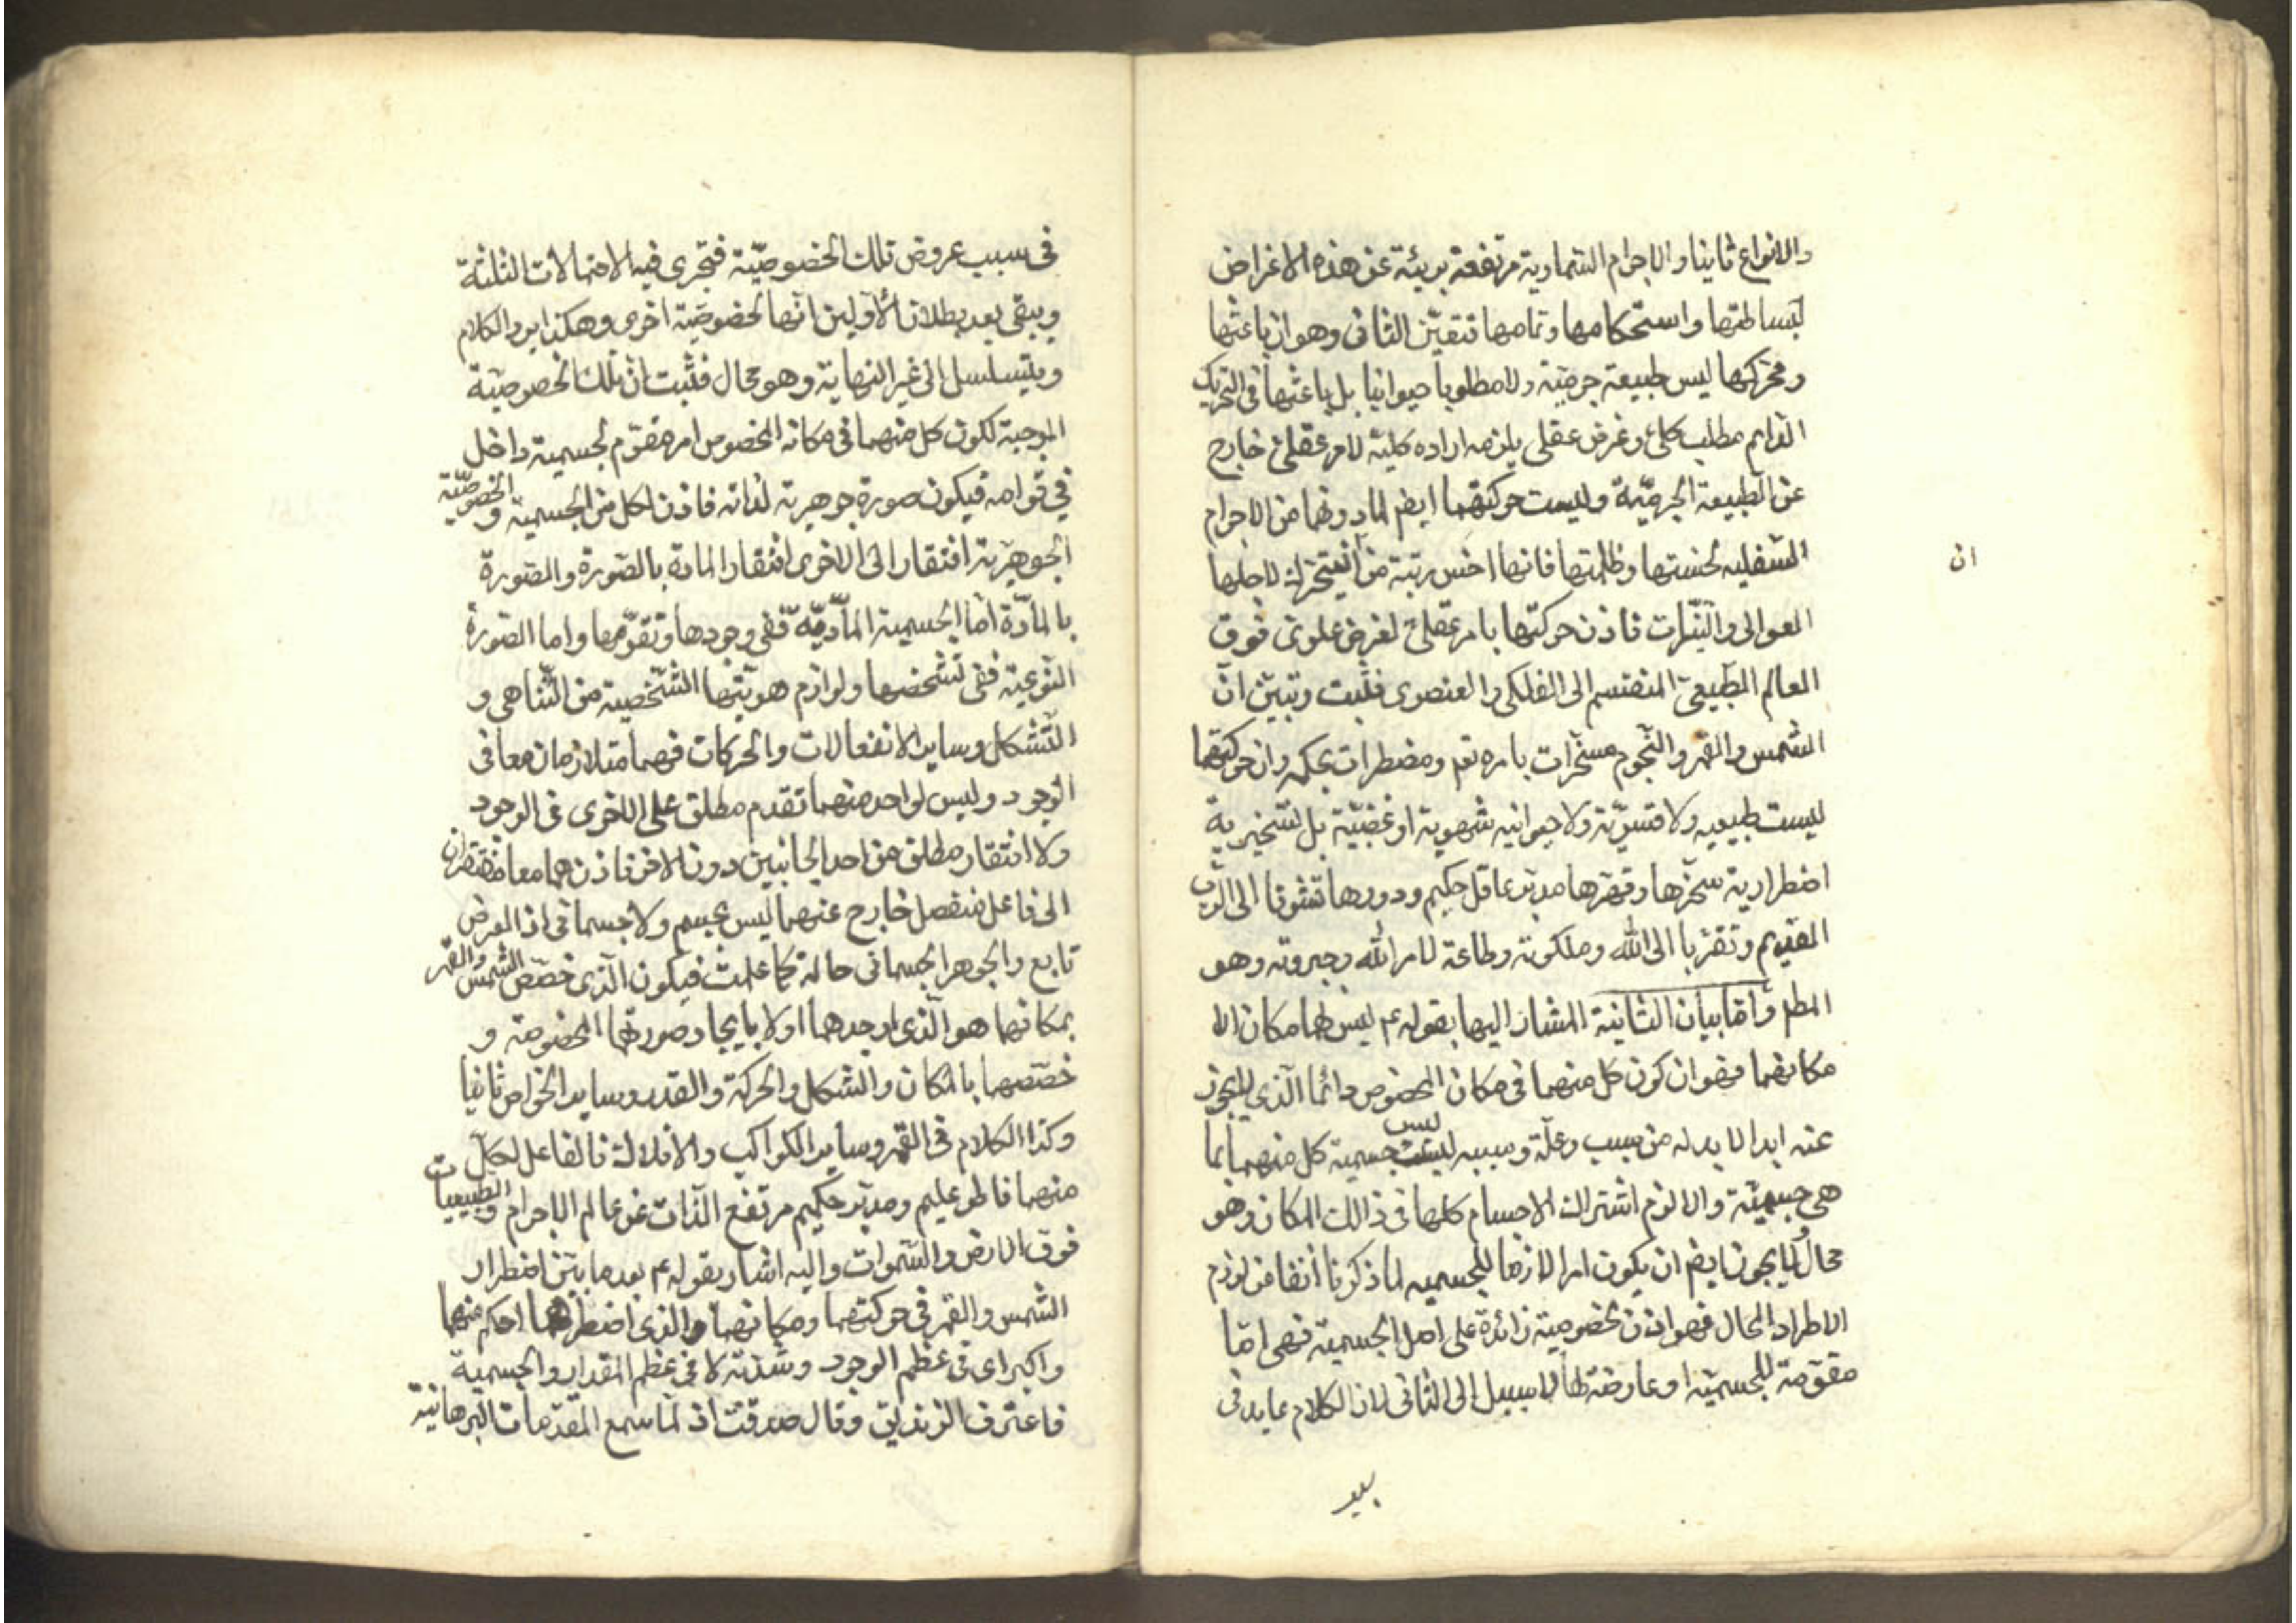 والانواع ثانيا والاجرام السماوية مرتفعة بريئة عن هذه الاغراض
لبساطتها واستحكامها وتمامها فتعيّن الثانى وهو ان باعثها
ومحركها ليس طبيعة جرميّة ولا مطلوبا حيوانيا بل باعثها فى التحريك
الدايم مطلب كلى وغرض عقلى يلزمه اراده كلية لامر عقلى خارج
عن الطبيعة الجرميّة وليست حركتهما ايضم لما دونهما من الاجرام
السفليه لخستها وظلمتها فانها اخس رتبة من ان يتحرك لاجلها
العوالى والنيّرات فاذن حركتها بامر عقلى لغرض علوى فوق
العالم الطبيعى المنقسم الى الفلكى والعنصرى فثبت وتبيّن انّ
الشمس والقمر والنجوم مسخّرات بامره تعم ومضطرات بحكمه وان حركتهما
ليست طبيعيه ولا قسريّة ولا حيوانيه شهوية او غضبيّة بل تسخيرية
اضطرارية سخّرها وقهرها مدبّر عاقل حكيم ودورها تشوقا الى الربّ
القديم وتقرّبا الى الله وملكوته وطاعة لامر الله وجبروته وهو
المطم وأمّا بيان الثانية المشار اليها بقوله ع ليس لهما مكان الا
مكانهما فهو ان كون كل منهما فى مكان المخصوص دائما الّذى لا يجوز
عنه ابدا لا بد له من سبب وعلّة وسببه ليس جسمية كل منهما بما
هى جسميّة والا لزم اشتراك الاجسام كلها فى ذالك المكان وهو
محال ولا يجوز ايضم ان يكون امرا لازما للجسميه لما ذكرنا أنفا من لزوم
الاطراد المحال فهو اذن لخصوصية زائدة على اصل الجسمية فهى امّا
مقوّمة للجسميّة او عارضة لها لا سبيل الى الثانى لان الكلام عايد فى
فى سبب عروض تلك الخصوصيّة فيجرى فيه الاحتمالات الثلثة
ويبقى بعد بطلان الأوّلين انّها لخصوصيّة اخرى وهكذا يرد الكلام
ويتسلسل الى غير النهاية وهو محال فثبت انّ تلك الخصوصيّة
الموجبة لكون كل منهما فى مكانه المخصوص امر مقوّم لجسميته داخل
فى قوامه فيكون صورة جوهرية لذاته فاذن لكل من الجسمية والخصوصيّة
الجوهريّة افتقار الى الاخرى افتقار المادة بالصّورة والصّورة
بالمادّة امّا الجسمية المادّيّة ففى وجودها وتقوّمها واما الصّورة
النّوعيّة ففى تشخصها ولوازم هويّتها الشّخصية من التّناهى و
التّشكل وساير الانفعالات والحركات فهما متلازمان معا فى
الوجود وليس لواحد منهما تقدم مطلق على الاخرى فى الوجود
ولا افتقار مطلق من احد الجانبين دون الاخر فاذن هما معا مفتقران
الى فاعل منفصل خارج عنهما ليس بجسم ولا جسمانى اذ العرض
تابع والجوهر الجسمانى حاله كما علمت فيكون الّذى خصّص الشّمس والقمر
بمكانهما هو الّذى اوجدهما اولا بايجاد صورتهما المخصوصة و
خصّصهما بالمكان والشكل والحركة والقدر وساير الخواص ثانيا
وكذا الكلام فى القمر وساير الكواكب والافلاك فالفاعل لكلّ
منهما فاطر عليم ومدبّر حكيم مرتفع الذّات عن عالم الاجرام والطبيعيات
فوق الارض والسّموات واليه اشار بقوله ع بعد ما بيّن اضطرار
الشّمس والقمر فى حركتهما ومكانهما والذى اضطرهما احكم منهما
واكبر اى فى عظم الوجود وشدّته لا فى عظم المقدار والجسمية
فاعترف الزنديق وقال صدقت اذ لمّا سمع المقدّمات البرهانيّة
ان